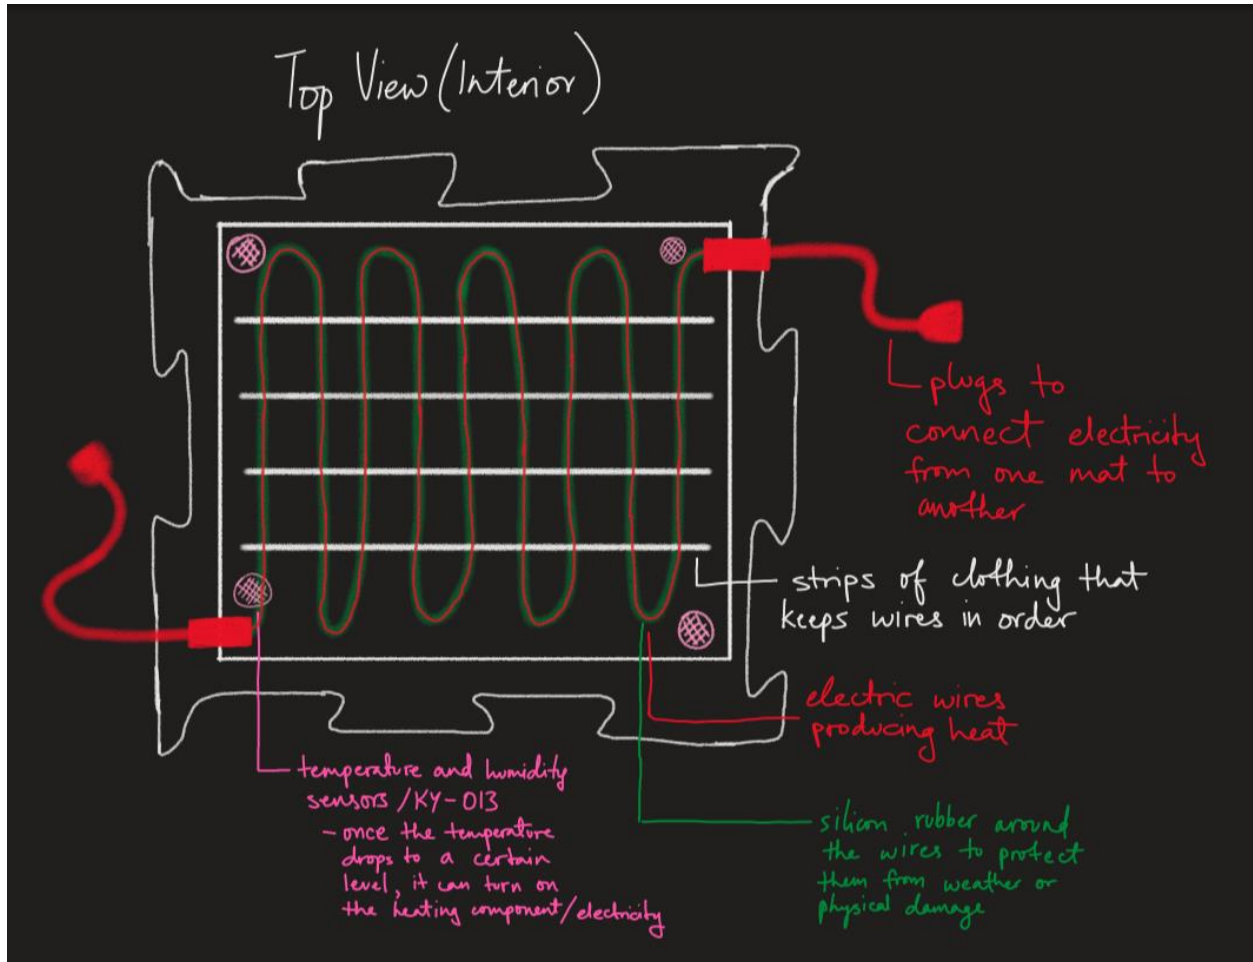 Top View (Interior)
plugs to
connect electricity
from one mat to
another
strips of clothing that
keeps wires in order
electric wires
producing heat
temperature and humidity
sensors/KY-013
- once the temperature
drops to a certain
level, it can turn on
the heating component/electricity
silicon rubber around
the wires to protect
them from weather or
physical damage